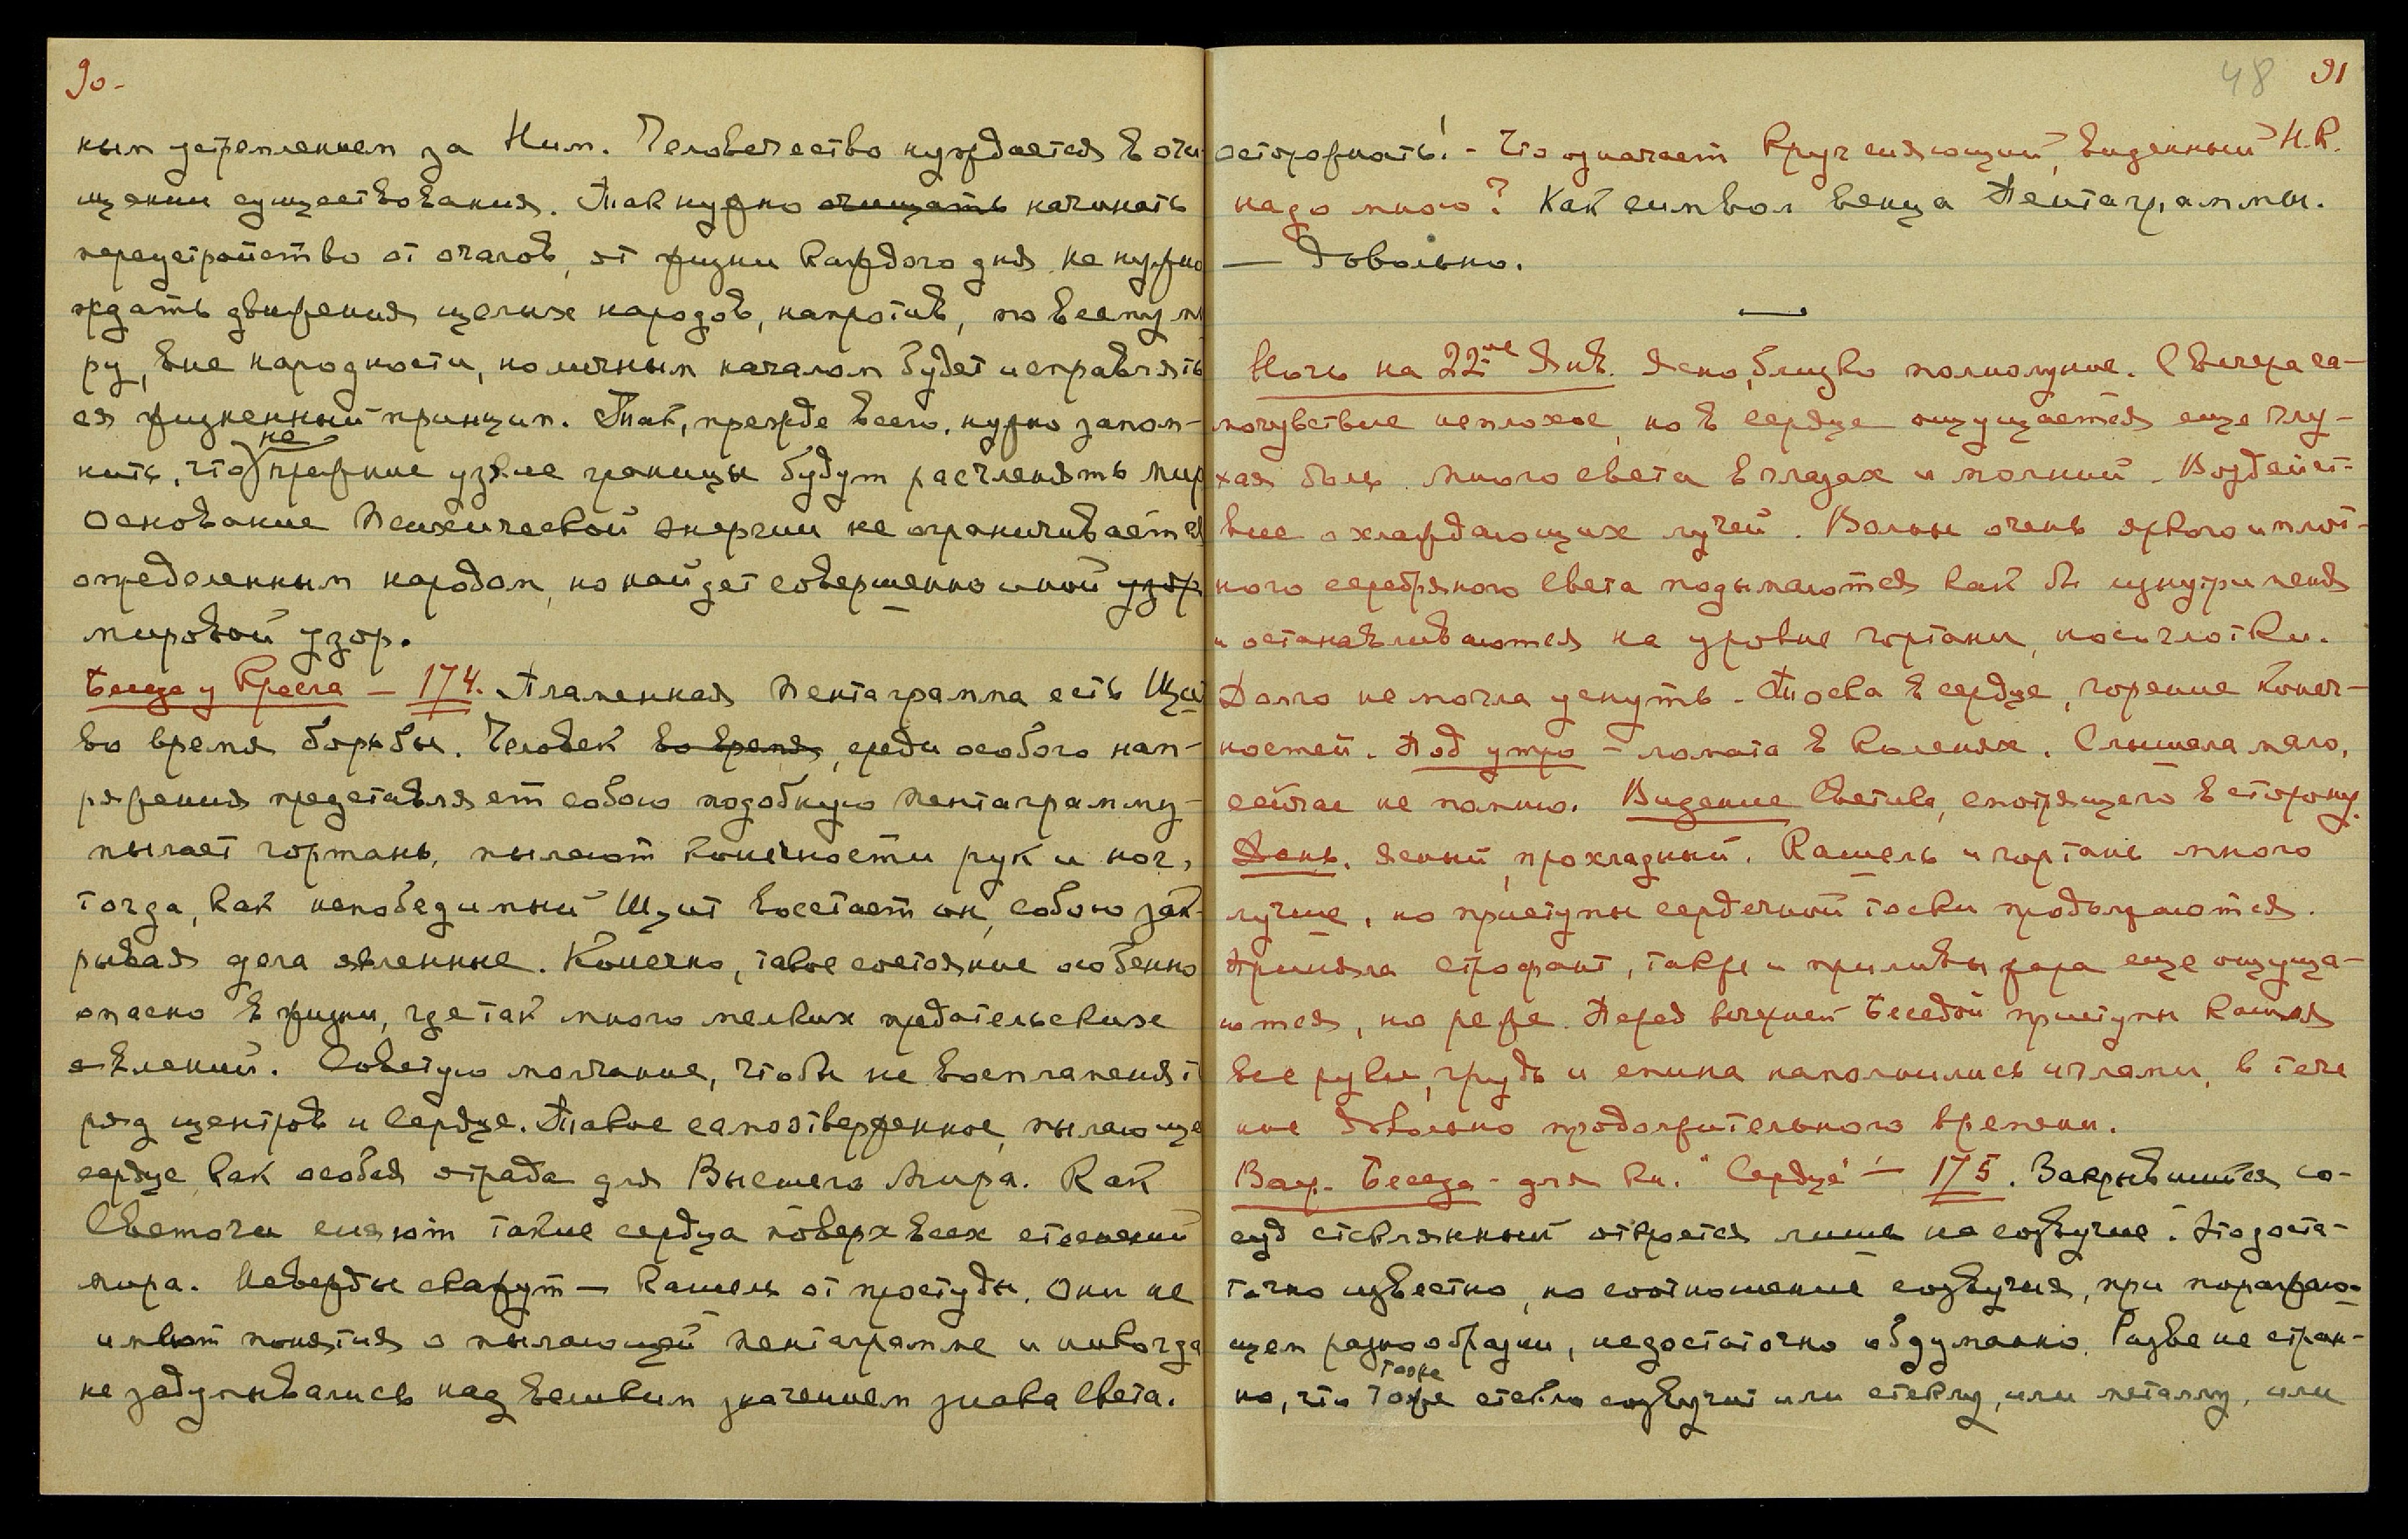 90-
ным устремлением за Ним. Человечество нуждается в очи-
щении существования. Так нужно очищать начинать
переустройство от очагов, от жизни каждого дня. Не нужно
ждать движения целых народов, напротив, по всему ми
ру, вне народности, но личным началом будет исправлять
ся жизненный принцип. Так, прежде всего, нужно запом-
не
нить, что прежние узкие границы будут расчленять мир
Основание психической энергии не ограничивается
определенным народом, но найдет совершенно иной узор
мировой узор.
Беседа у Кресла – 174. Пламенная пентаграмма есть Щит
во время борьбы. Человек во время, среди особого нап-
ряжения представляет собою подобную пентаграмму –
пылает гортань, пылают конечности рук и ног,
тогда, как непобедимый Щит восстает он, собою зак-
рывая дела явленные. Конечно, такое состояние особенно
опасно в жизни, где так много мелких предательских
явлений. Советую молчание, чтобы не воспламенят
ряд центров и сердце. Такое самоотверженное, пылающе
сердце, как особая отрада для Высшего Мира. Как
Светочи сияют такие сердца поверх всех стенаний
мира. Невежды скажут – кашель от простуды. Они не
имеют понятия о пылающей пентаграмме и никогда
не задумывались над великим значением знака Света.
48 91
осторожность! - Что означает Круг сияющий, виденный Н.К.
надо мною? Как символ венца Пентаграммы.
— Довольно.
Ночь на 22-ое Янв. Ясно, близко полнолуние. С вечера са-
мочувствие неплохое, но в сердце ощущается еще глу-
хая боль. Много света в глазах и молний. Воздейст-
вие охлаждающих лучей. Волны очень яркого и плот-
ного серебряного света подымаются как бы изнутри меня
и останавливаются на уровне гортани, носоглотки.
Долго не могла уснуть. Тоска в сердце, горение конеч-
ностей. Под утро – ломота в коленях. Слышала мало,
сейчас не помню. Видение Светика, смотрящего в сторону.
День. Ясный, прохладный. Кашель и гортань много
лучше, но приступы сердечной тоски продолжаются.
Приняла строфант, также и приливы жара еще ощуща-
ются, но реже. Перед вечерней Беседой приступы кашля
все руки, грудь и спина наполнились иглами, в тече
ние довольно продолжительного времени.
Веч. Беседа – для кн. "Сердце" – 175. Закрывшийся со-
суд стеклянный откроется лишь на созвучие. Это доста-
точно известно, но соотношение созвучия, при поражаю-
щем разнообразии, недостаточно обдуманно. Разве не стран-
тоже
но, что тоже стекло созвучит или стеклу, или металлу, или